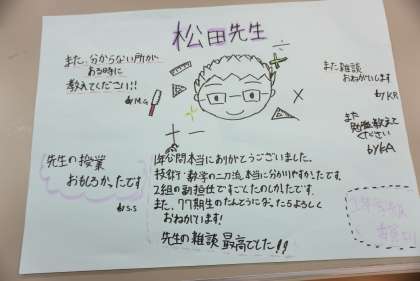 松田先生
また、分からない所が
ある時に
教えてください!!
by M.G
また雑談
おねがいします
by KR
また
勉強教えて
ください
by KA
先生の授業
おもしろかったです
by S.S
1年間本当にありがとうございました。
技術！数学の二刀流本当に分かりやすかったです。
2組の副担任ですごしたのしかったです。
また、77期生のたんとうになったらよろしく
おねがいします!
先生の雑談 最高でした!!